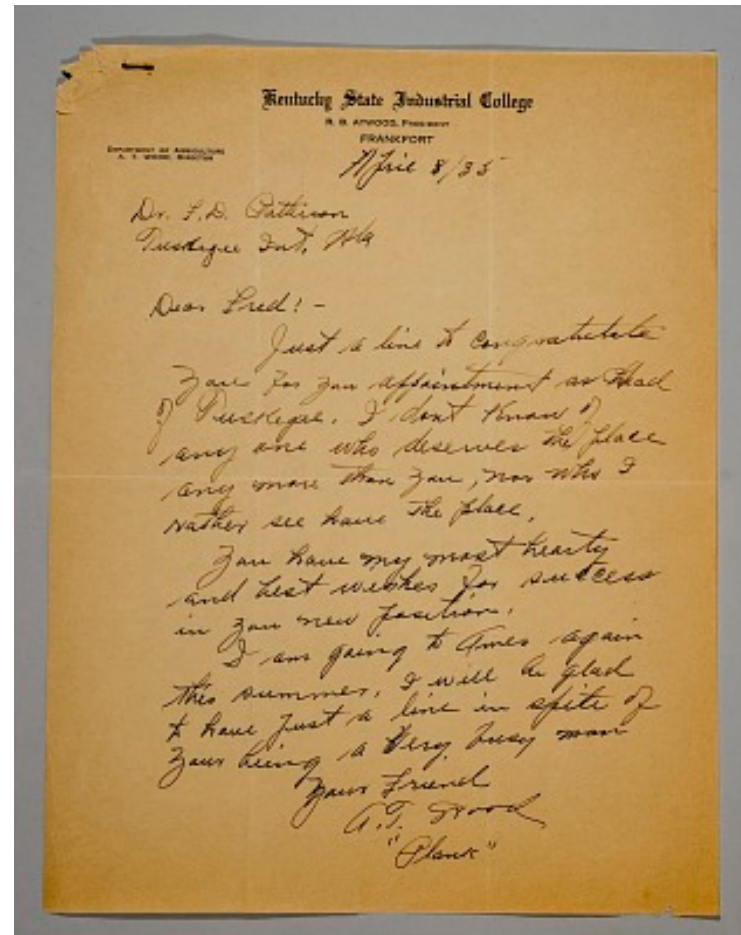 Kentucky State Industrial College
R. B. ATWOOD, PRESIDENT
FRANKFORT
DEPARTMENT OF AGRICULTURE
A. T. WOOD, DIRECTOR
April 8/35
Dr. F. D. Patterson
Tuskegee Inst, Ala
Dear Fred! -
Just a line to congratulate
you for you appointment as Head
of Tuskegee. I don't know of
any one who deserves the place
any more than you, nor who I
rather see have the place.
You have my most hearty
and best wishes for success
in you new position.
I am going to Ames again
this summer. I will be glad
to have just a line in spite of
your being a very busy man
Your Friend
A. T. Wood
"Plank"